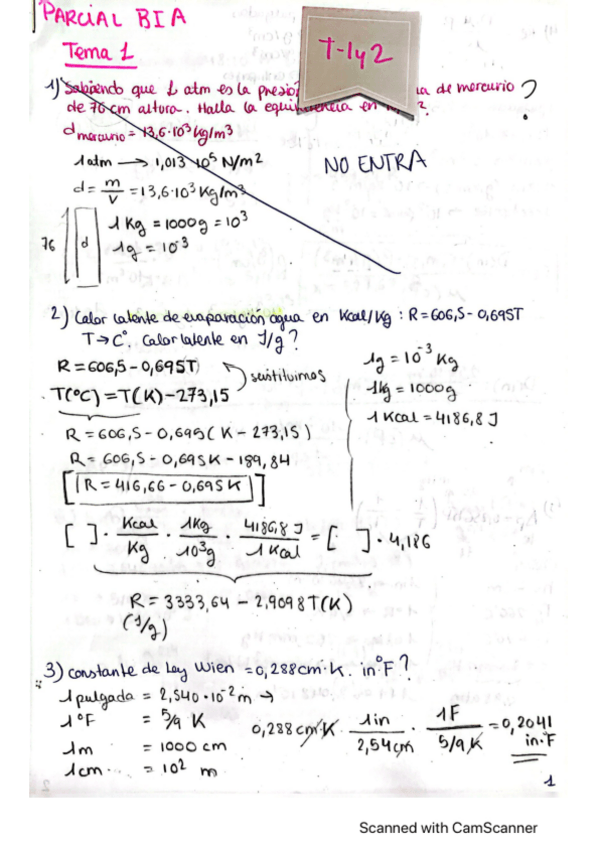 PARCIAL BIA
T-1y2
Tema 1
1) Sabiendo que 1 atm es la presió de mercurio
de 76 cm altura. Halla la equivalencia en ?
d mercurio = 13,6·10³ kg/m³
1 atm → 1,013·10⁵ N/m²
NO ENTRA
d = m/V = 13,6·10³ Kg/m³
1 Kg = 1000g = 10³
1g = 10⁻³
76 d
2) Calor latente de evaporación agua en Kcal/Kg : R = 606,5 - 0,695T
T → Cº. Calor latente en J/g?
R = 606,5 - 0,695T
sustituimos
T(ºC) = T(K) - 273,15
1g = 10⁻³ Kg
1kg = 1000g
1 Kcal = 4186,8 J
R = 606,5 - 0,695(K - 273,15)
R = 606,5 - 0,695K - 189,84
[R = 416,66 - 0,695K]
[ ] · Kcal/Kg · 1Kg/10³g · 4186,8 J/1 Kcal = [ ] · 4,186
R = 3333,64 - 2,9098T(K)
(J/g)
3) Constante de Ley Wien = 0,288cm·K. inºF?
1 pulgada = 2,540·10⁻² m →
1ºF = 5/9 K
1m = 1000 cm
1cm = 10² m
0,288 cm·K · 1in/2,54cm · 1F/5/9 K = 0,2041 in·F
1
Scanned with CamScanner